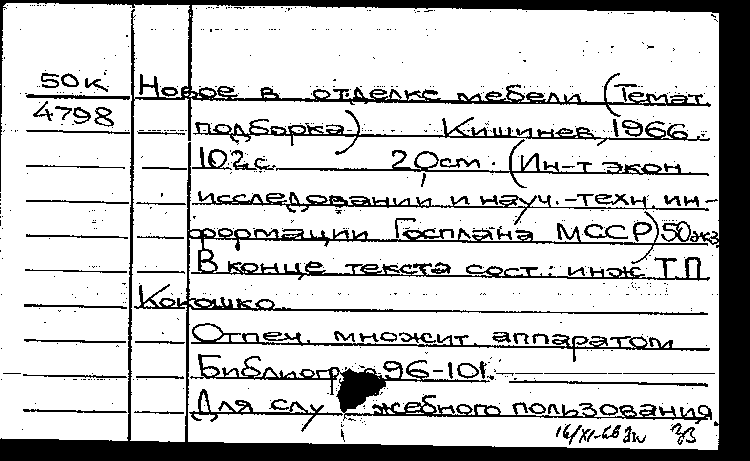 50к Новое в отделке мебели (Темат.
4798 подборка) Кишинев, 1966.
102 с. 20 ст. (Ин-т экон.
исследований и науч.-техн. ин-
формации Госплана МССР) 50 экз.
В конце текста сост.: инж. Т.П.
Кокошко.
Отпеч. множит. аппаратом
Библиогр. 96-101.
Для служебного пользования.
16/XI-66